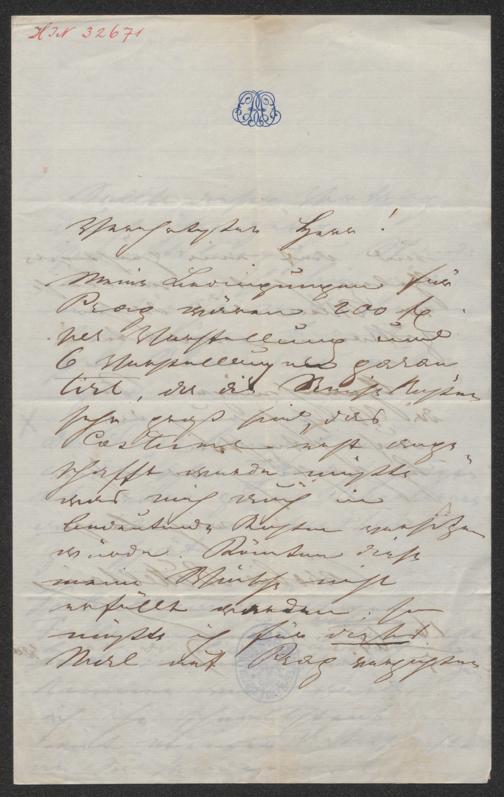 HIN 32671
Verehrtester Herr!
Meine Bedingungen für
Prag wären 200 fl.
per Vorstellung und
6 Vorstellungen garan
tirt, da die Kosten
sehr groß sind, das
Costume erst ange
schafft werden müßte
was mich auch in
bedeutende Kosten versetzen
würde. Könnten diese
meine Wünsche nicht
erfüllt werden, so
müßte ich für dießes
Mal auf Prag verzichten